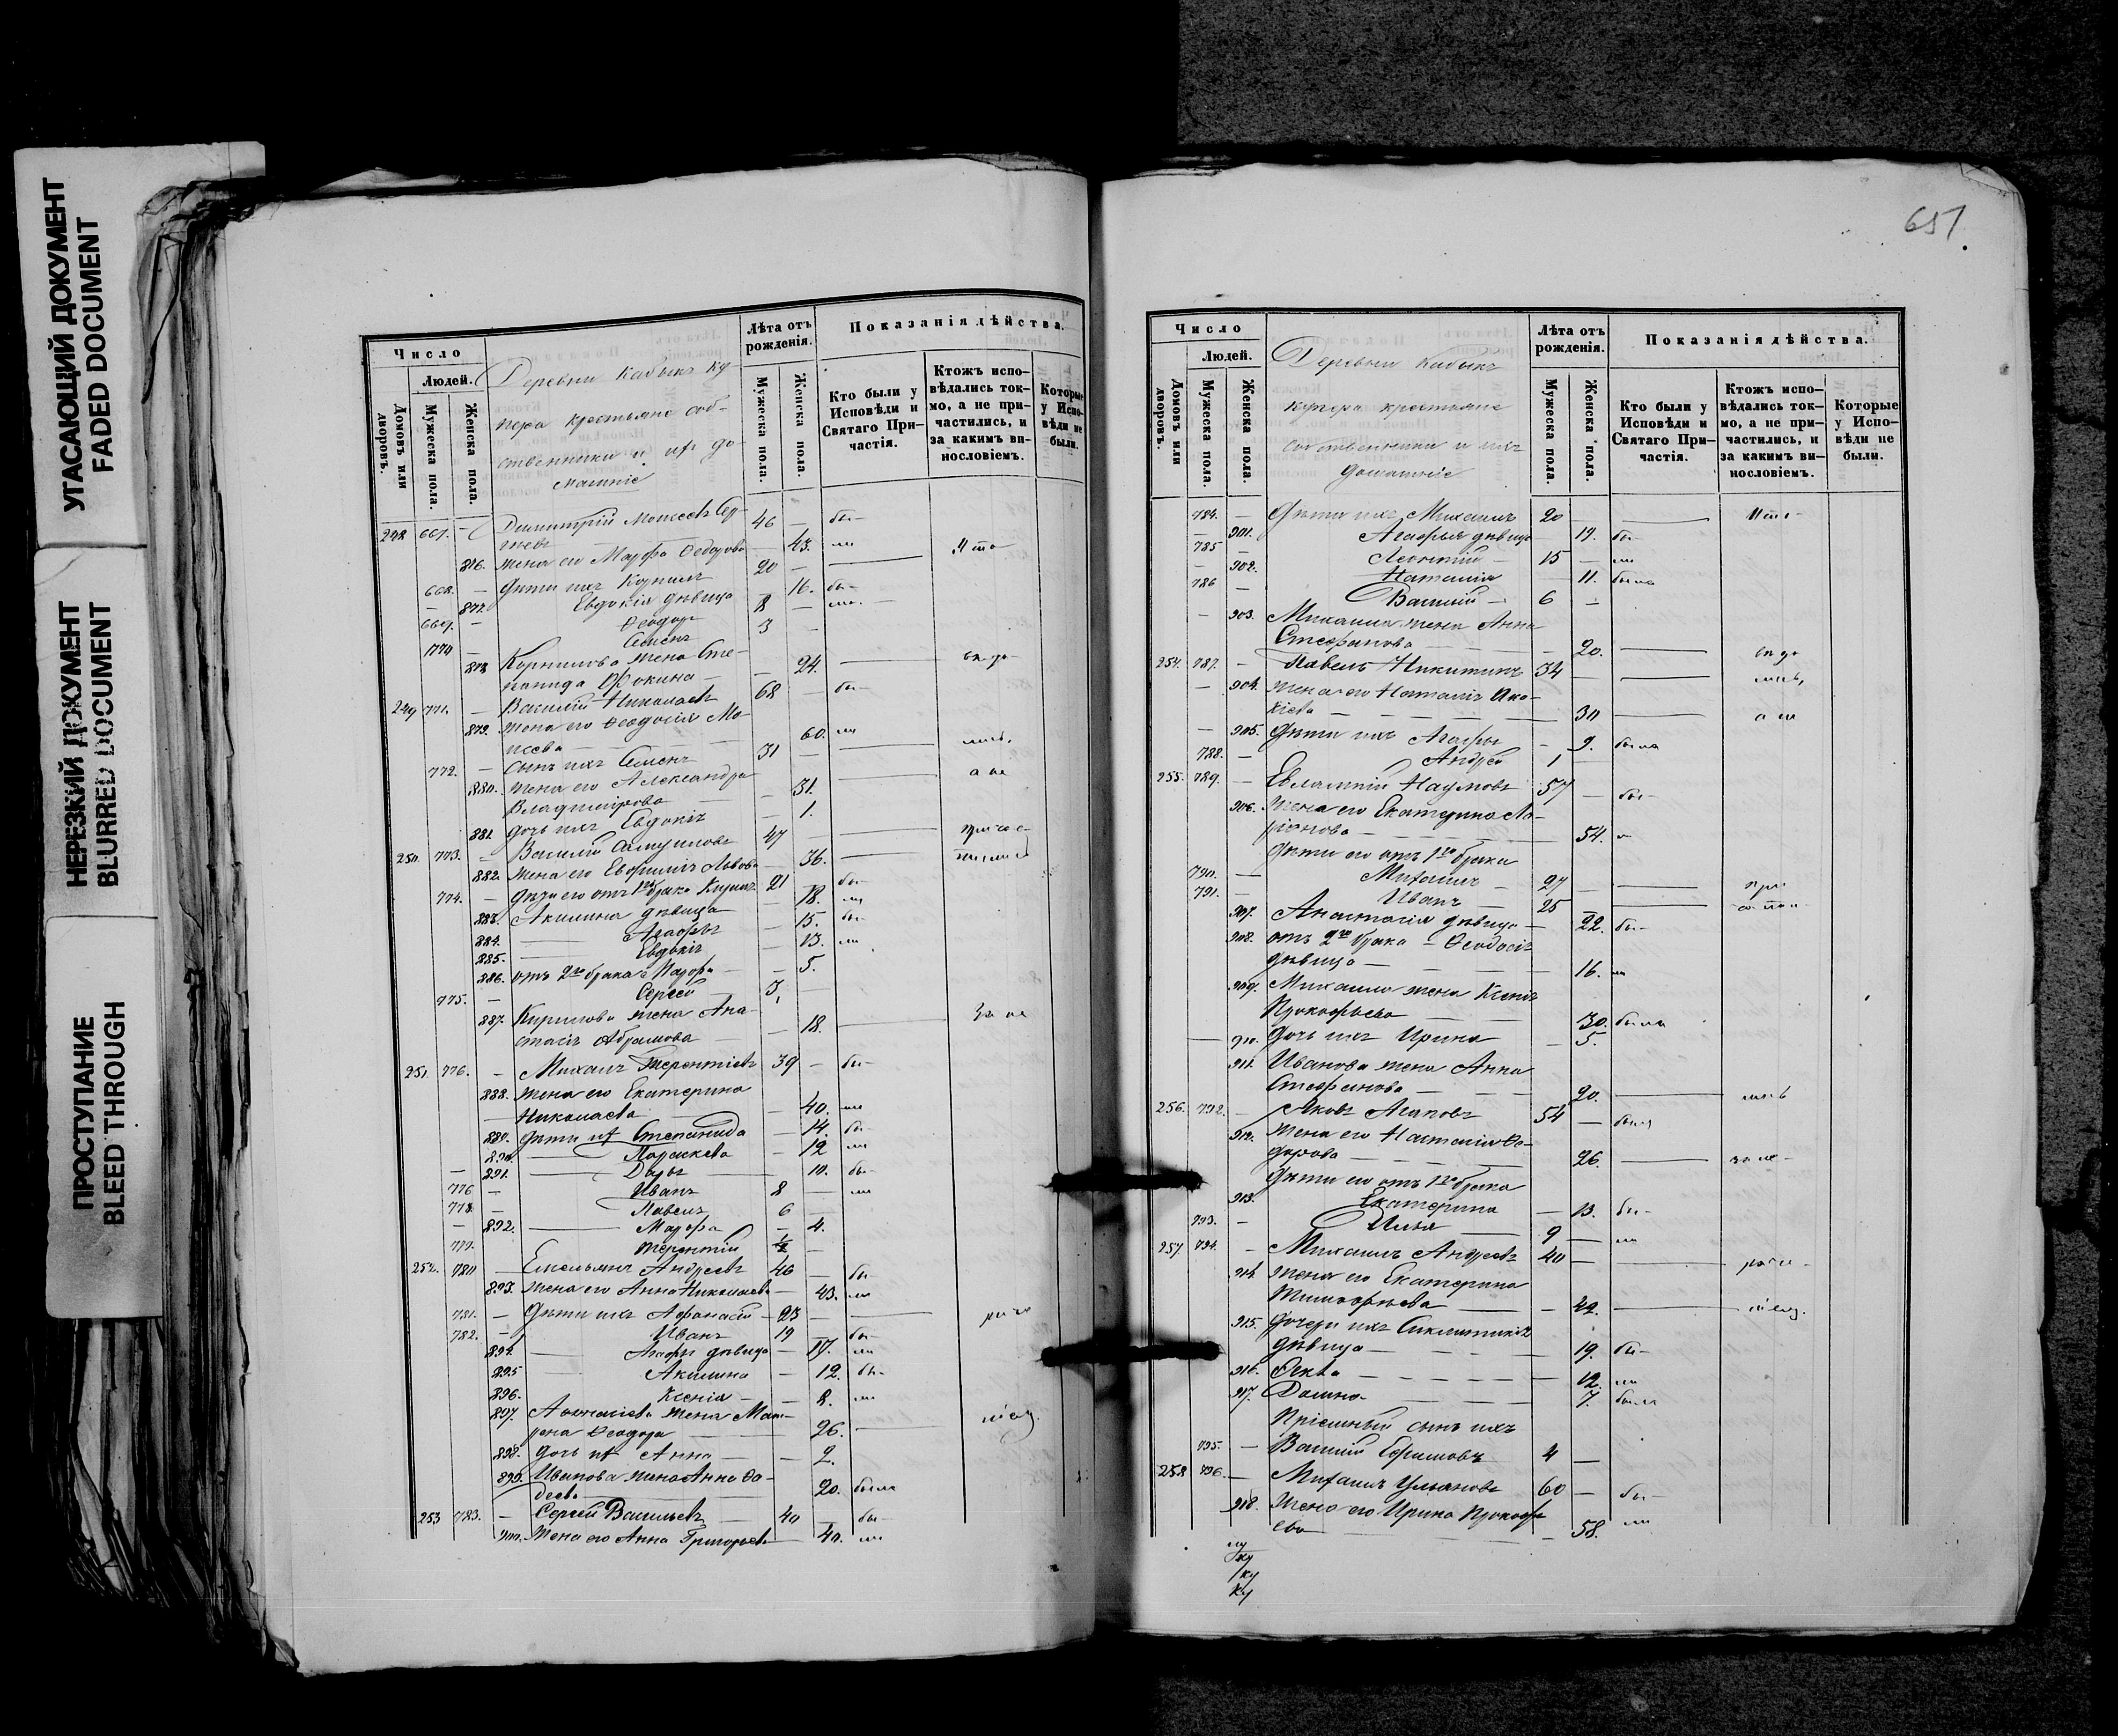 УГАСАЮЩИЙ ДОКУМЕНТ
FADED DOCUMENT
НЕРЕЗКИЙ ДОКУМЕНТ
BLURRED DOCUMENT
ПРОСТУПАНИЕ
BLEED THROUGH
Число
Людей.
Домовъ или дворовъ.
Мужеска пола.
Женска пола.
Деревни Кабыкъ Ку-
пера крестьяне соб-
ственники и их до-
машніе
Лѣта отъ рожденія.
Мужеска пола.
Женска пола.
Показанія дѣйства.
Кто были у Исповѣди и Святаго При-частія.
Ктожъ испо-вѣдались ток-мо, а не при-частились, и за какимъ ви-нословіемъ.
Которые у Испо-вѣди не были.
Димитрій Моисеевъ 46
876. жена его Марфа Ѳедорова 43.
668. дѣти ихъ Корнилъ 20
877. Евдокія дѣвица 16. бы-
669. Ѳеодоръ 8
770 Семенъ 3
878. Корнилова жена Сте-
панида Фокина 24.
249 771. Василій Николаевъ 68 бы-
879. жена его Ѳеодосія Мо-
исеева 60. ли
772. сынъ ихъ Семенъ 31
880. жена его Александра
Владимірова 31.
881. дочь ихъ Евдокія 1.
250. 773. Василій Самуиловъ 47
882. жена его Евфимія Львова 36.
774. дѣти его отъ 1го брака Кирилъ 21 бы-
883. Акилина дѣвица 18. ли
884. Агафья 15. бы-
885. Евдокія 13. ли
886. отъ 2го брака Марфа 5.
775. Сергей 3,
887. Кирилова жена Ана-
стасія Абрамова 18.
251. 776. Михаилъ Терентіевъ 39 бы-
888. жена его Екатерина
Николаева 40. ли
889. дѣти их Степанида 14. бы-
890. Параскева 12 ли
891. Дарья 10. бы-
776 Иванъ 8 ли
778. Павелъ 6
892. Марфа 4.
779. Терентій 1/2
252. 780 Емельянъ Андреевъ 46 бы
893. жена его Анна Николаева 43. ли
781. дѣти ихъ Афанасій 23
782. Иванъ 19 бы-
894. Агафья дѣвица 17. ли
895 Акилина 12. бы-
896. Ксенія 8. ли
897. Афанасіева жена Мат-
рена Ѳеодора 26.
898. дочь их Анна 2.
899. Иванова жена Анна Ѳа-
деева 20. была
253 783. Сергей Васильевъ 40 бы-
900. жена его Анна Григорьева 40. ли
651.
Число
Людей.
Домовъ или дворовъ.
Мужеска пола.
Женска пола.
Деревни Кабыкъ
купера крестьяне
собственники и ихъ
домашніе
Лѣта отъ рожденія.
Мужеска пола.
Женска пола.
Показанія дѣйства.
Кто были у Исповѣди и Святаго При-частія.
Ктожъ испо-вѣдались ток-мо, а не при-частились, и за какимъ ви-нословіемъ.
Которые у Испо-вѣди не были.
784. Дѣти ихъ Михаилъ 20
901. Агафья дѣвица 19. бы-
785 Леонтій 15 ли
902. Наталія 11. была
786 Василій 6
903. Михаила жена Анна
Стефанова 20.
254. 787. Павелъ Никитинъ 34
904. жена его Наталія Ака-
кіева 30
905. дѣти ихъ Агафья 9. была
788. Андрей 1
255. 789. Евлампій Наумовъ 57 бы-
906. жена его Екатерина Ла-
ріонова 54.
дѣти его отъ 1го брака
790. Михаилъ 27
791. Иванъ 25
907. Анастасія дѣвица 22. бы-
908. отъ 2го брака Ѳеодосія
дѣвица 16. ли
909. Михаила жена Ксенія
Прокофьева 30. была
910. дочь ихъ Ирина 5.
911. Иванова жена Анна
Стефанова 20.
256. 792. Яковъ Агаповъ 54 былъ
912. жена его Наталія Ѳе-
дорова 26.
дѣти его отъ 1го брака
913. Екатерина 13. бы-
793. Илья 9 ли
257. 794. Михаилъ Андреевъ 40
914. жена его Екатерина
Тимофеева 42.
915. дочери ихъ Синклитикія
дѣвица 19. бы-
916. Ѳекла 12. ли
917. Домна 7. была
Пріемный сынъ ихъ
795. Василій Ефимовъ 4
258 796. Михаилъ Ульяновъ 60 бы-
918. жена его Ирина Прокофь
ева 58. ли